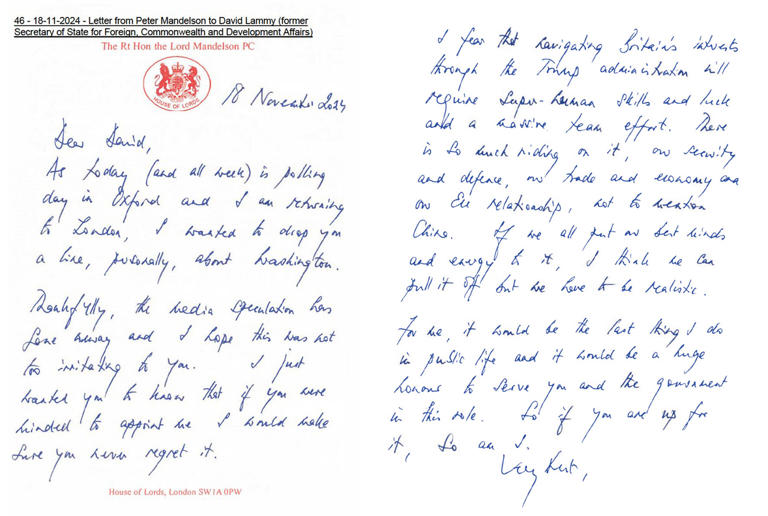 46 - 18-11-2024 - Letter from Peter Mandelson to David Lammy (former
Secretary of State for Foreign, Commonwealth and Development Affairs)
The Rt Hon the Lord Mandelson PC
HOUSE OF LORDS
18 November 2024
Dear David,
As today (and all week) is polling
day in Oxford and I am returning
to London, I wanted to drop you
a line, personally, about Washington.
Thankfully, the media speculation has
gone away and I hope this was not
too irritating to you. I just
wanted you to know that if you were
minded to appoint me I would make
sure you never regret it.
House of Lords, London SW1A 0PW
I fear that navigating Britain's interests
through the Trump administration will
require super-human skills and luck
and a massive team effort. There
is so much riding on it, our security
and defence, our trade and economy and
our EU relationship, not to mention
China. If we all put our best minds
and energy to it, I think we can
pull it off but we have to be realistic.
For me, it would be the last thing I do
in public life and it would be a huge
honour to serve you and the government
in this role. So if you are up for
it, so am I.
Very best,